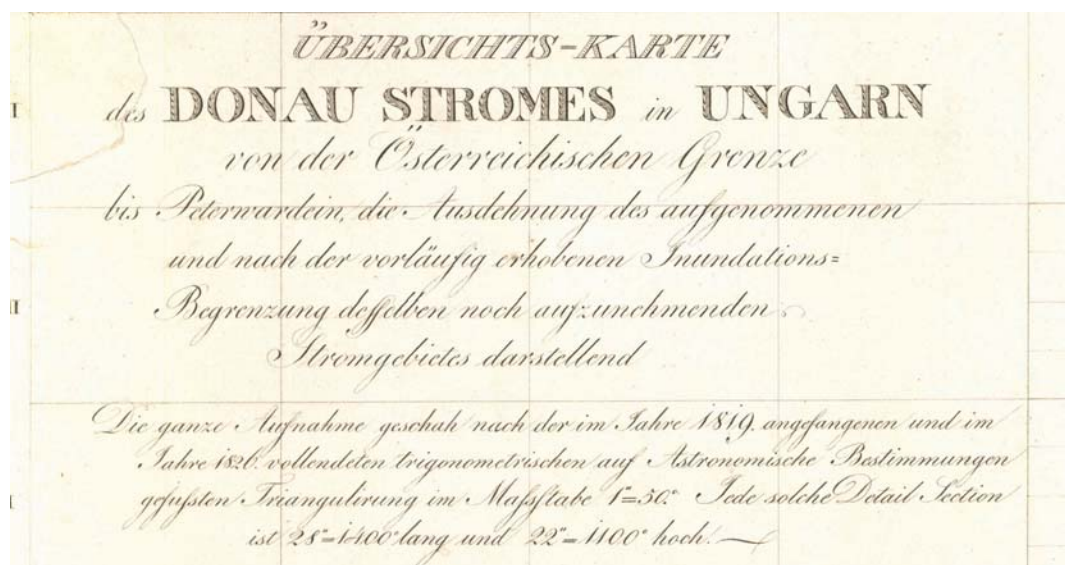 ÜBERSICHTS-KARTE
des DONAU STROMES in UNGARN
von der Österreichischen Grenze
bis Peterwardein, die Ausdehnung des aufgenommenen
und nach der vorläufig erhobenen Inundations=
Begrenzung desselben noch aufzunehmenden
Stromgebietes darstellend
Die ganze Aufnahme geschah nach der im Jahre 1819. angefangenen und im
Jahre 1826. vollendeten trigonometrischen auf Astronomische Bestimmungen
gefussten Triangulirung im Massstabe 1"=50.° Jede solche Detail Section
ist 28"=1400° lang und 22"=1100° hoch. —